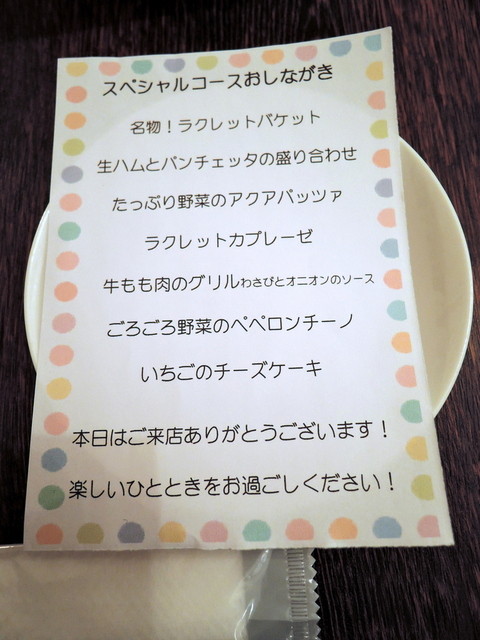 スペシャルコースおしながき
名物！ラクレットバケット
生ハムとパンチェッタの盛り合わせ
たっぷり野菜のアクアパッツァ
ラクレットカプレーゼ
牛もも肉のグリルわさびとオニオンのソース
ごろごろ野菜のペペロンチーノ
いちごのチーズケーキ
本日はご来店ありがとうございます！
楽しいひとときをお過ごしください！